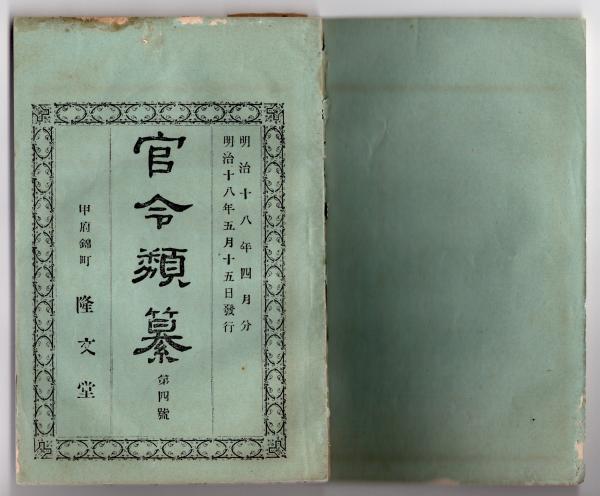 明治十八年四月分
明治十八年五月十五日發行
官令類纂 第四號
甲府錦町 隆文堂